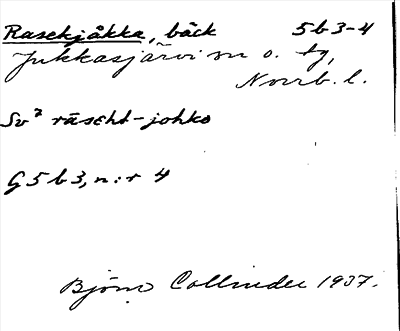 Rasekjåkka, bäck 5b3-4
Jukkasjärvi sn o. tg,
Norrb. l.
Sv² räseht-johko
G5b3, n:r 4
Björn Collinder 1937.